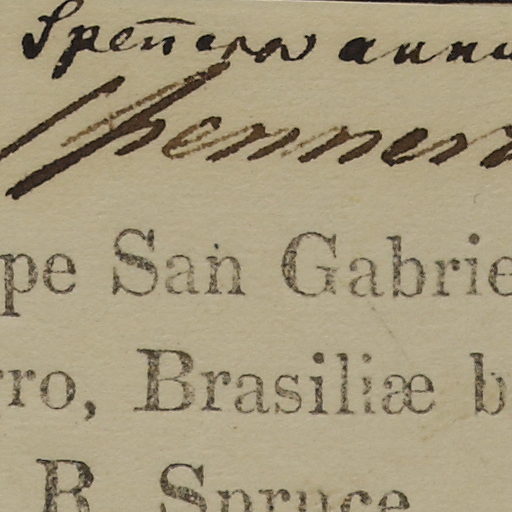 Spen̄era annu
Spenner
pe San Gabrie
rro, Brasiliæ b
R. Spruce